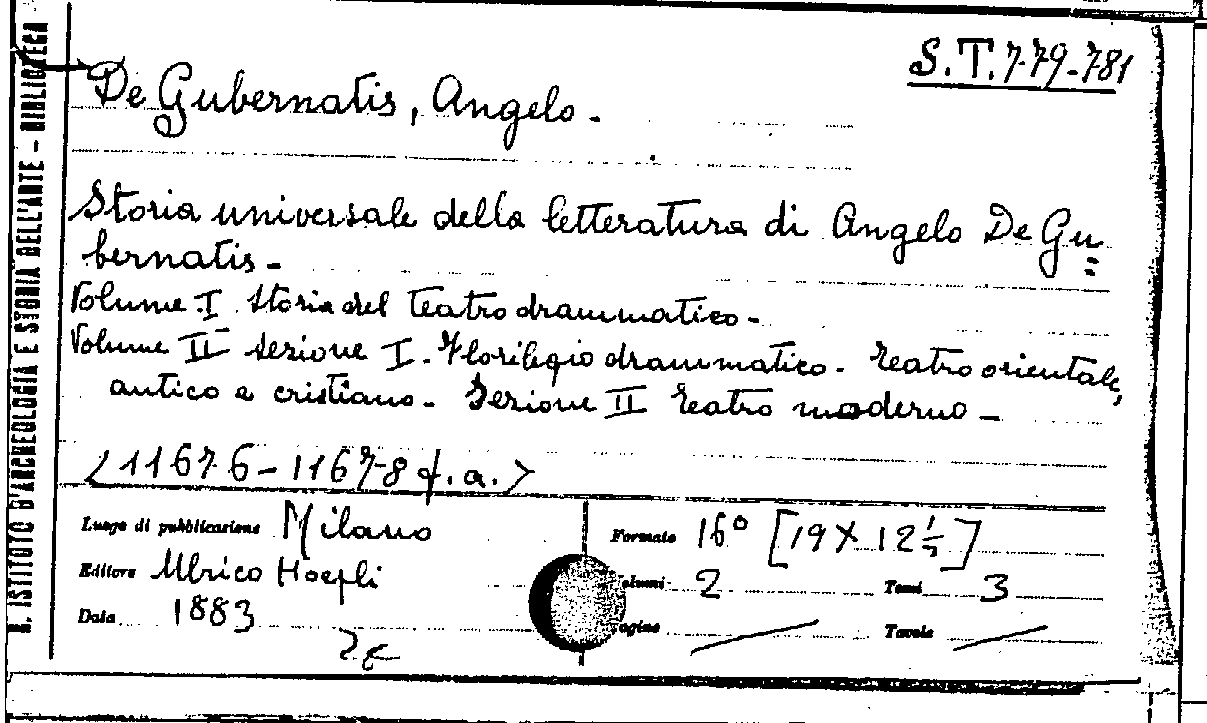 R. ISTITUTO D'ARCHEOLOGIA E STORIA DELL'ARTE - BIBLIOTECA
S.T. 779-781
De Gubernatis, Angelo.
Storia universale della letteratura di Angelo De Gu=
bernatis -
Volume I Storia del Teatro drammatico -
Volume II Sezione I. Florilegio drammatico - Teatro orientale,
antico e cristiano - Sezione II Teatro moderno -
<11676-11678 f.a.>
Luogo di pubblicazione Milano
Formato 16° [19 X 12 ½]
Editore Ulrico Hoepli
Volumi 2
Tomi 3
Data 1883
Pagine
Tavole